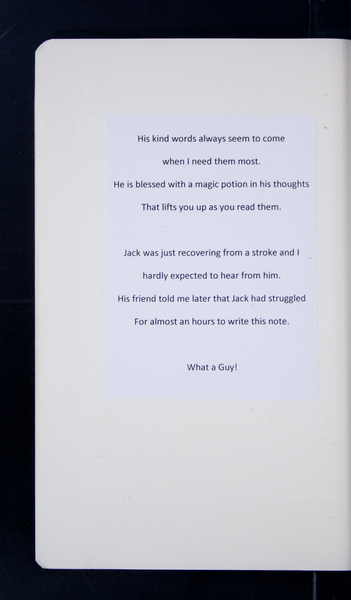 His kind words always seem to come
when I need them most.
He is blessed with a magic potion in his thoughts
That lifts you up as you read them.
Jack was just recovering from a stroke and I
hardly expected to hear from him.
His friend told me later that Jack had struggled
For almost an hours to write this note.
What a Guy!